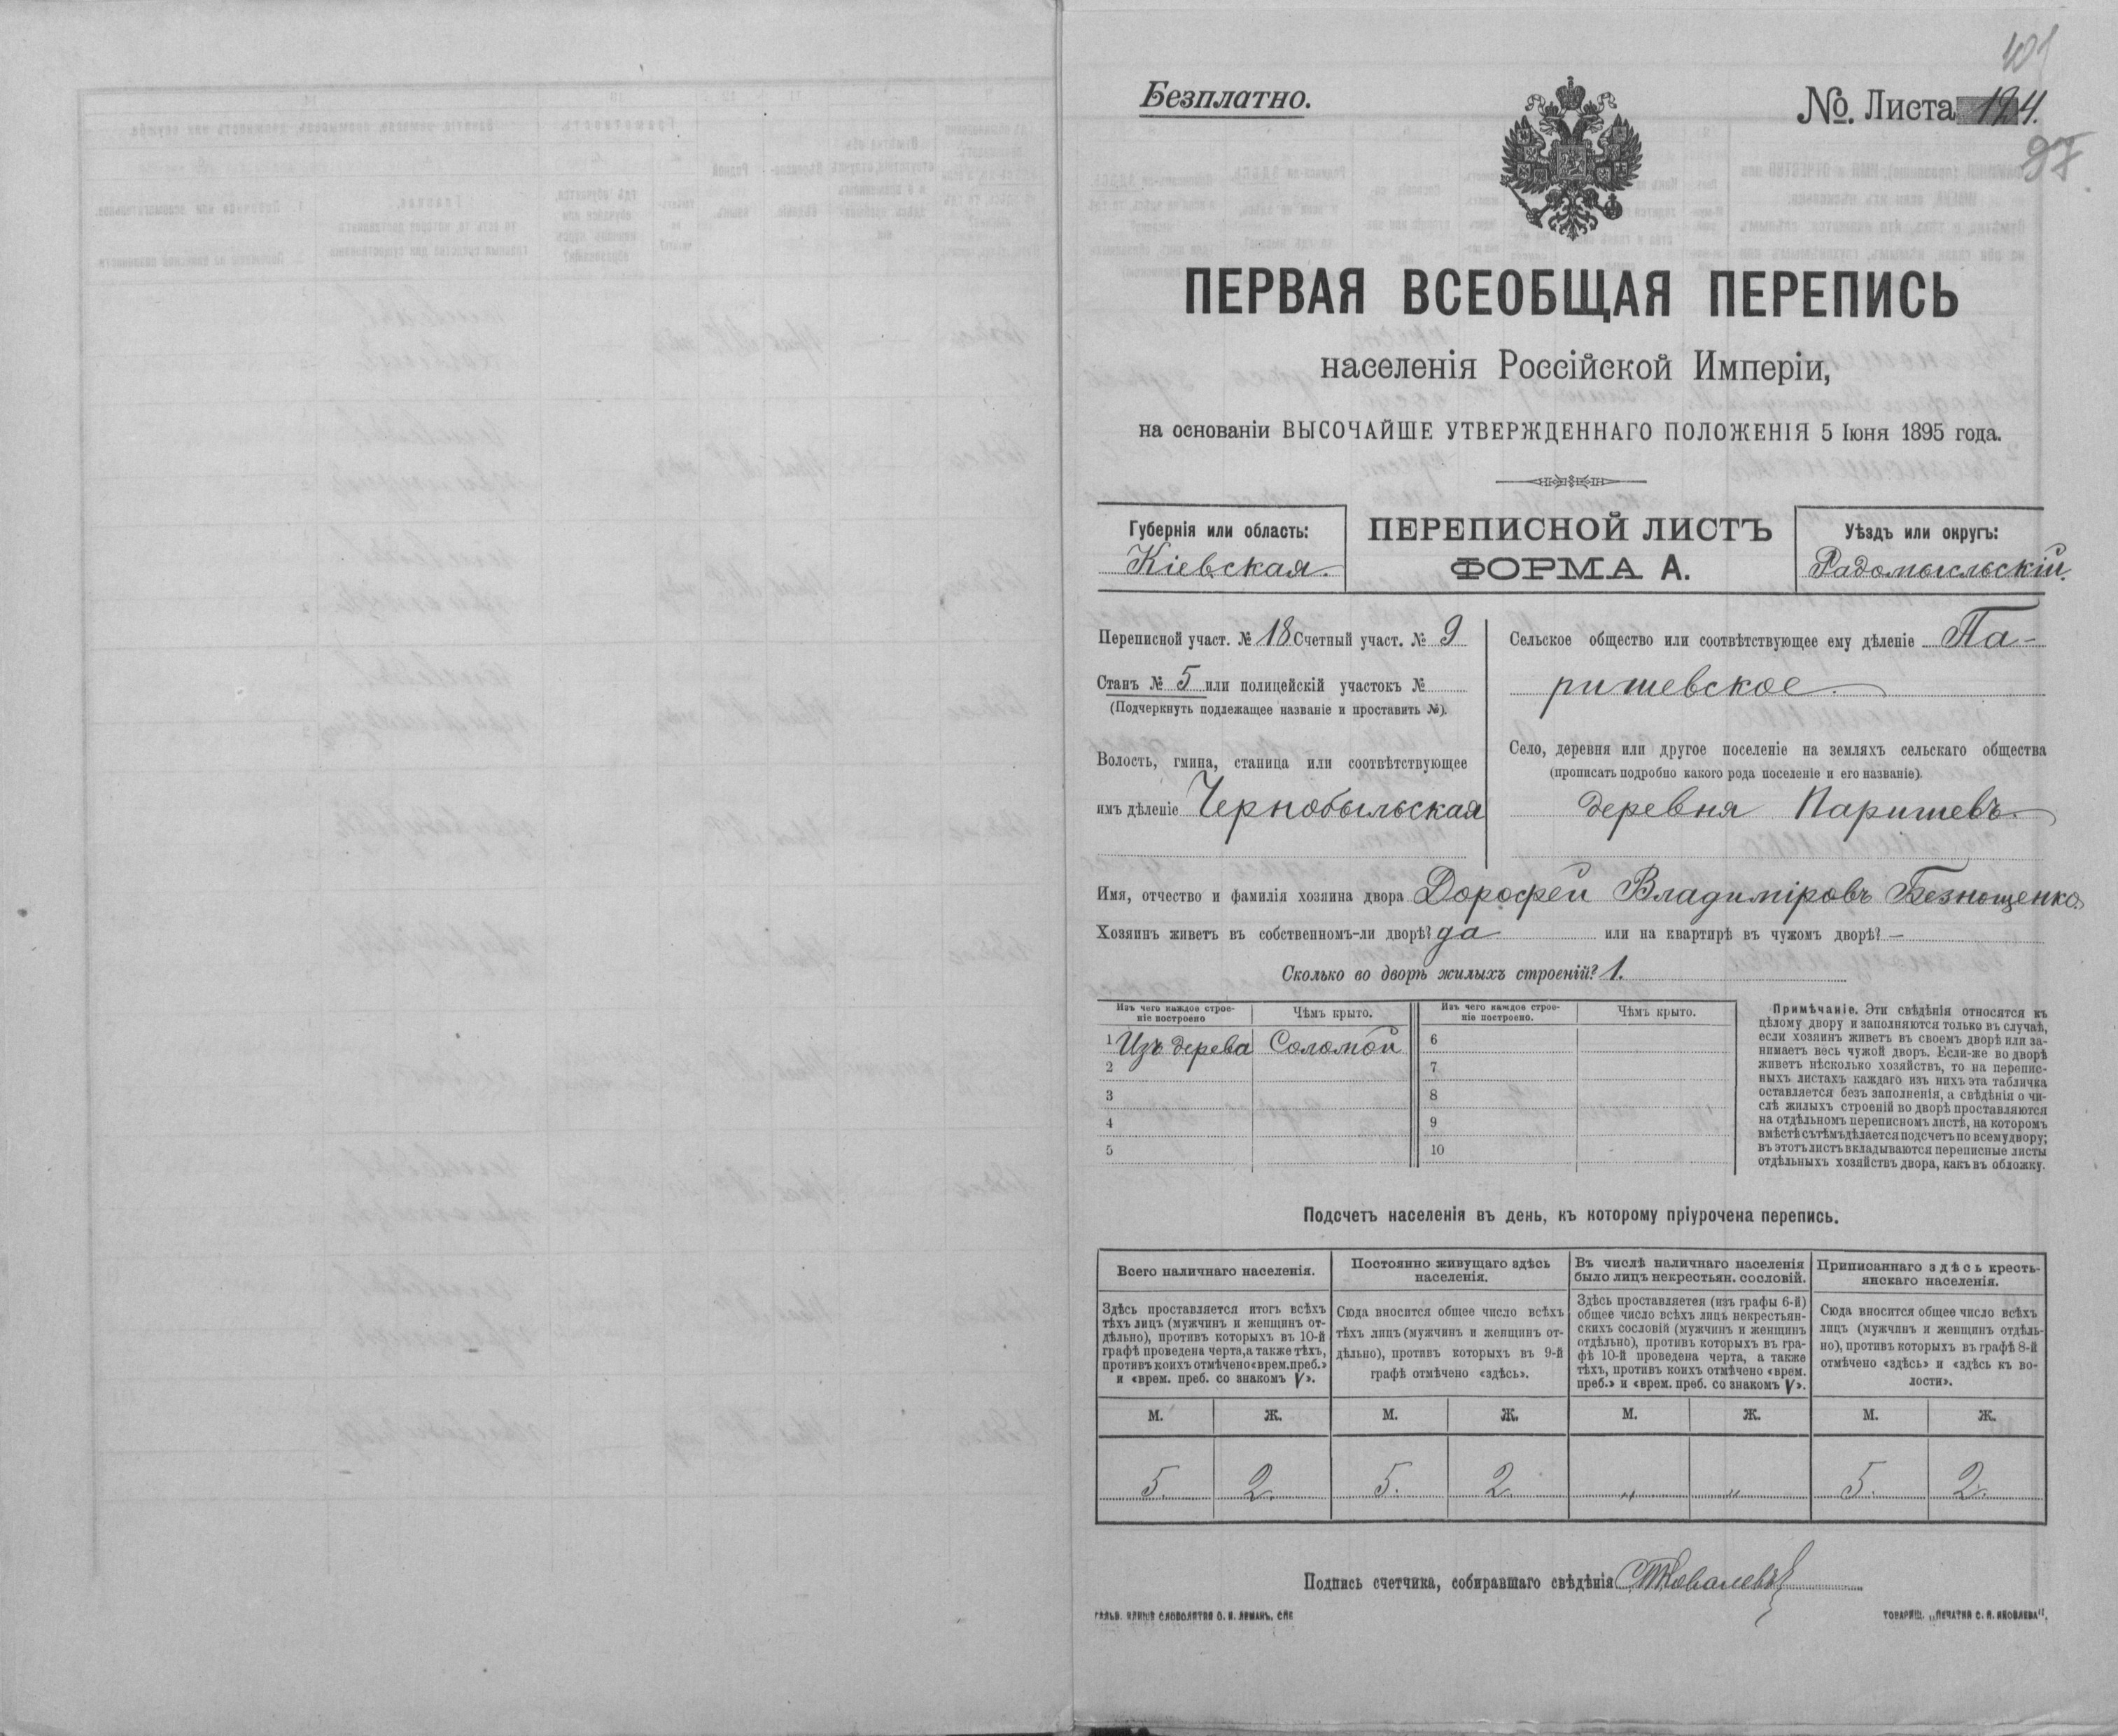 401
Безплатно.
№. Листа 124.
97
ПЕРВАЯ ВСЕОБЩАЯ ПЕРЕПИСЬ
населенія Россійской Имперіи,
на основаніи ВЫСОЧАЙШЕ УТВЕРЖДЕННАГО ПОЛОЖЕНІЯ 5 Іюня 1895 года.
Губернія или область:
Кіевская.
ПЕРЕПИСНОЙ ЛИСТЪ
ФОРМА А.
Уѣздъ или округъ:
Радомысльскій.
Переписной участ. № 18 Счетный участ. № 9
Станъ № 5 или полицейскій участокъ №
(Подчеркнуть подлежащее названіе и проставить №).
Волость, гмина, станица или соотвѣтствующее
имъ дѣленіе Чернобыльская
Сельское общество или соотвѣтствующее ему дѣленіе Па-
ришевское.
Село, деревня или другое поселеніе на земляхъ сельскаго общества
(прописать подробно какого рода поселеніе и его названіе).
деревня Паришевъ
Имя, отчество и фамилія хозяина двора Дорофей Владиміровъ Безнощенко.
Хозяинъ живетъ въ собственномъ-ли дворѣ? да или на квартирѣ въ чужомъ дворѣ? —
Сколько во дворѣ жилыхъ строеній? 1.
Изъ чего каждое строе-
ніе построено
Чѣмъ крыто.
Изъ чего каждое строе-
ніе построено.
Чѣмъ крыто.
1 Изъ дерева Соломой 6
2 7
3 8
4 9
5 10
Примѣчаніе. Эти свѣдѣнія относятся къ
цѣлому двору и заполняются только въ случаѣ,
если хозяинъ живетъ въ своемъ дворѣ или за-
нимаетъ весь чужой дворъ. Если-же во дворѣ
живетъ нѣсколько хозяйствъ, то на перепис-
ныхъ листахъ каждаго изъ нихъ эта табличка
оставляется безъ заполненія, а свѣдѣнія о чи-
слѣ жилыхъ строеній во дворѣ проставляются
на отдѣльномъ переписномъ листѣ, на которомъ
вмѣстѣ съ тѣмъ дѣлается подсчетъ по всему двору;
въ этотъ листъ вкладываются переписные листы
отдѣльныхъ хозяйствъ двора, какъ въ обложку.
Подсчетъ населенія въ день, къ которому пріурочена перепись.
Всего наличнаго населенія.
Здѣсь проставляется итогъ всѣхъ
тѣхъ лицъ (мужчинъ и женщинъ от-
дѣльно), противъ которыхъ въ 10-й
графѣ проведена черта, а также тѣхъ,
противъ коихъ отмѣчено «врем. преб.»
и «врем. преб. со знакомъ V».
Постоянно живущаго здѣсь
населенія.
Сюда вносится общее число всѣхъ
тѣхъ лицъ (мужчинъ и женщинъ от-
дѣльно), противъ которыхъ въ 9-й
графѣ отмѣчено «здѣсь».
Въ числѣ наличнаго населенія
было лицъ некрестьян. сословій.
Здѣсь проставляется (изъ графы 6-й)
общее число всѣхъ лицъ некрестьян-
скихъ сословій (мужчинъ и женщинъ
отдѣльно), противъ которыхъ въ гра-
фѣ 10-й проведена черта, а также
тѣхъ, противъ коихъ отмѣчено «врем.
преб.» и «врем. преб. со знакомъ V».
Приписаннаго здѣсь кресть-
янскаго населенія.
Сюда вносится общее число всѣхъ
лицъ (мужчинъ и женщинъ отдѣль-
но), противъ которыхъ въ графѣ 8-й
отмѣчено «здѣсь» и «здѣсь къ во-
лости».
М. Ж. М. Ж. М. Ж. М. Ж.
5. 2. 5. 2. „ „ 5. 2.
Подпись счетчика, собиравшаго свѣдѣнія
ГАЛЬВ. КЛИШЕ СЛОВОЛИТНИ О. И. ЛЕМАНЪ, СПБ
ТОВАРИЩ. „ПЕЧАТНЯ С. П. ЯКОВЛЕВА".